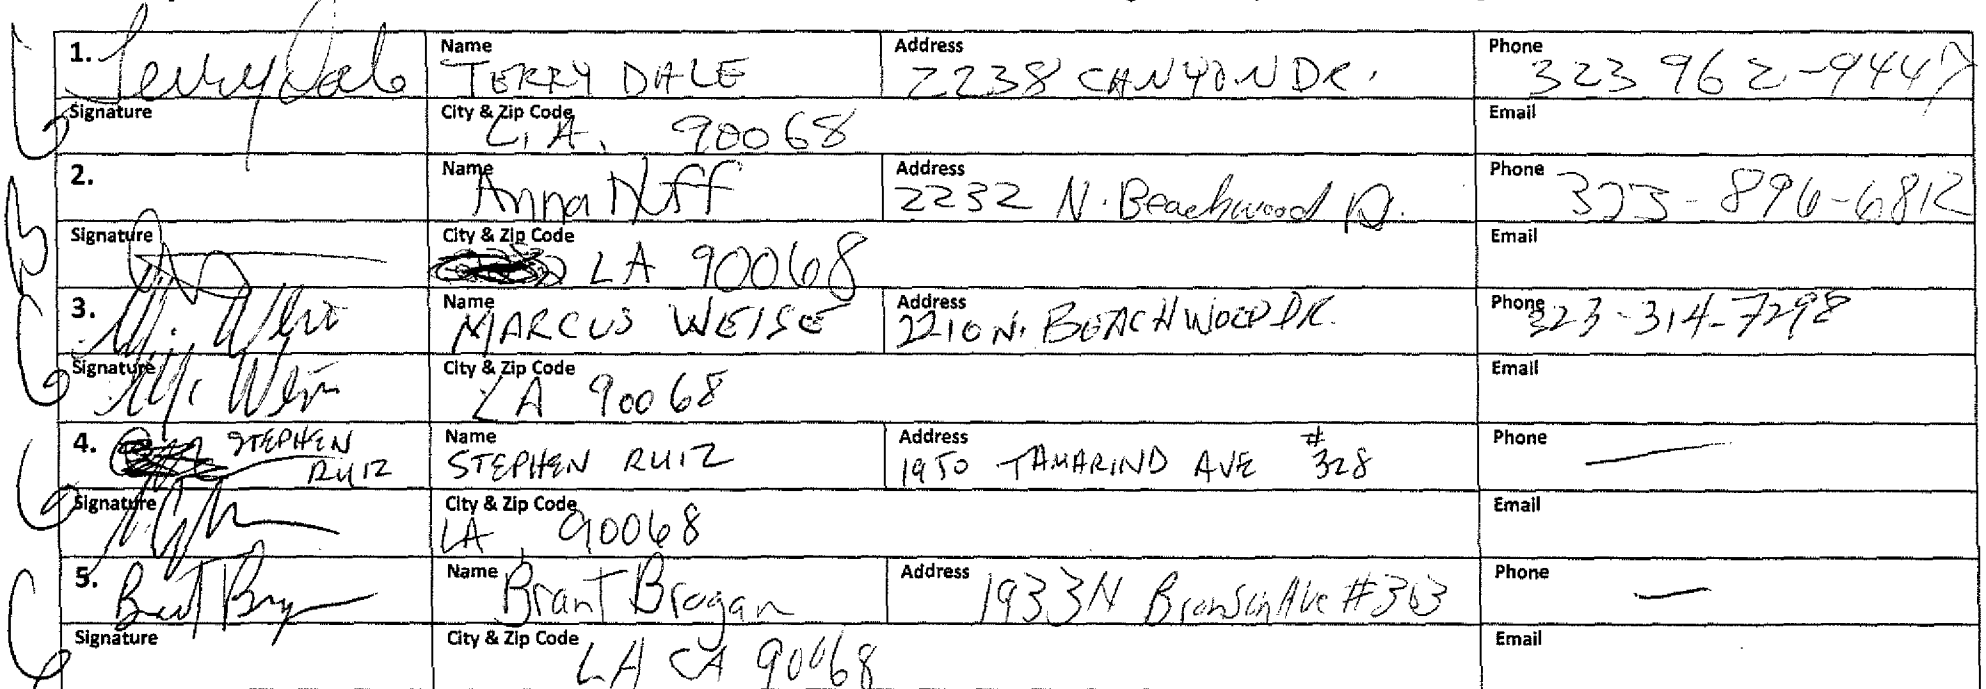 1. Terry Dale Name TERRY DALE Address 2238 CANYON DR. Phone 323 962-9447
Signature City & Zip Code L.A. 90068 Email
2. Name Anna Address 2232 N. Beachwood Dr. Phone 323-896-6812
Signature City & Zip Code LA 90068 Email
3. Name MARCUS WEISE Address 2210 N. BEACHWOOD DR. Phone 323-314-7298
Signature City & Zip Code LA 90068 Email
4. STEPHEN RUIZ Name STEPHEN RUIZ Address 1950 TAMARIND AVE #328 Phone —
Signature City & Zip Code LA, 90068 Email
5. Name Brant Brogan Address 1933 N Bronson Ave #303 Phone —
Signature City & Zip Code LA CA 90068 Email